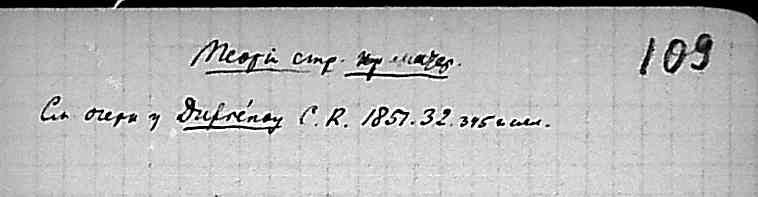 109
Теорiи стр. кр-мачер.
См. очерк у Dufrénoy C. R. 1851. 32. 345 и сл.